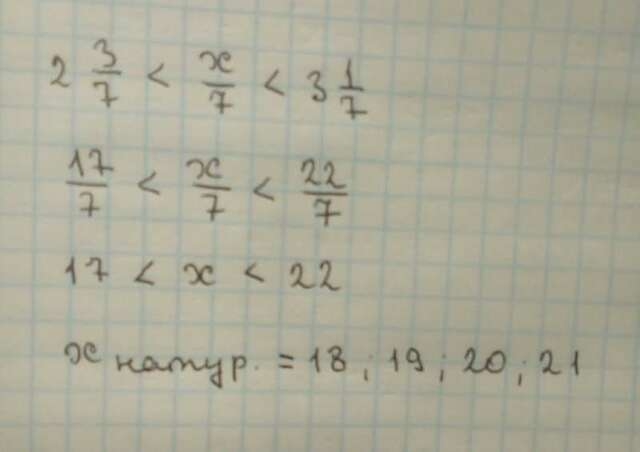 2 3/7 < x/7 < 3 1/7
17/7 < x/7 < 22/7
17 < x < 22
x натур. = 18; 19; 20; 21